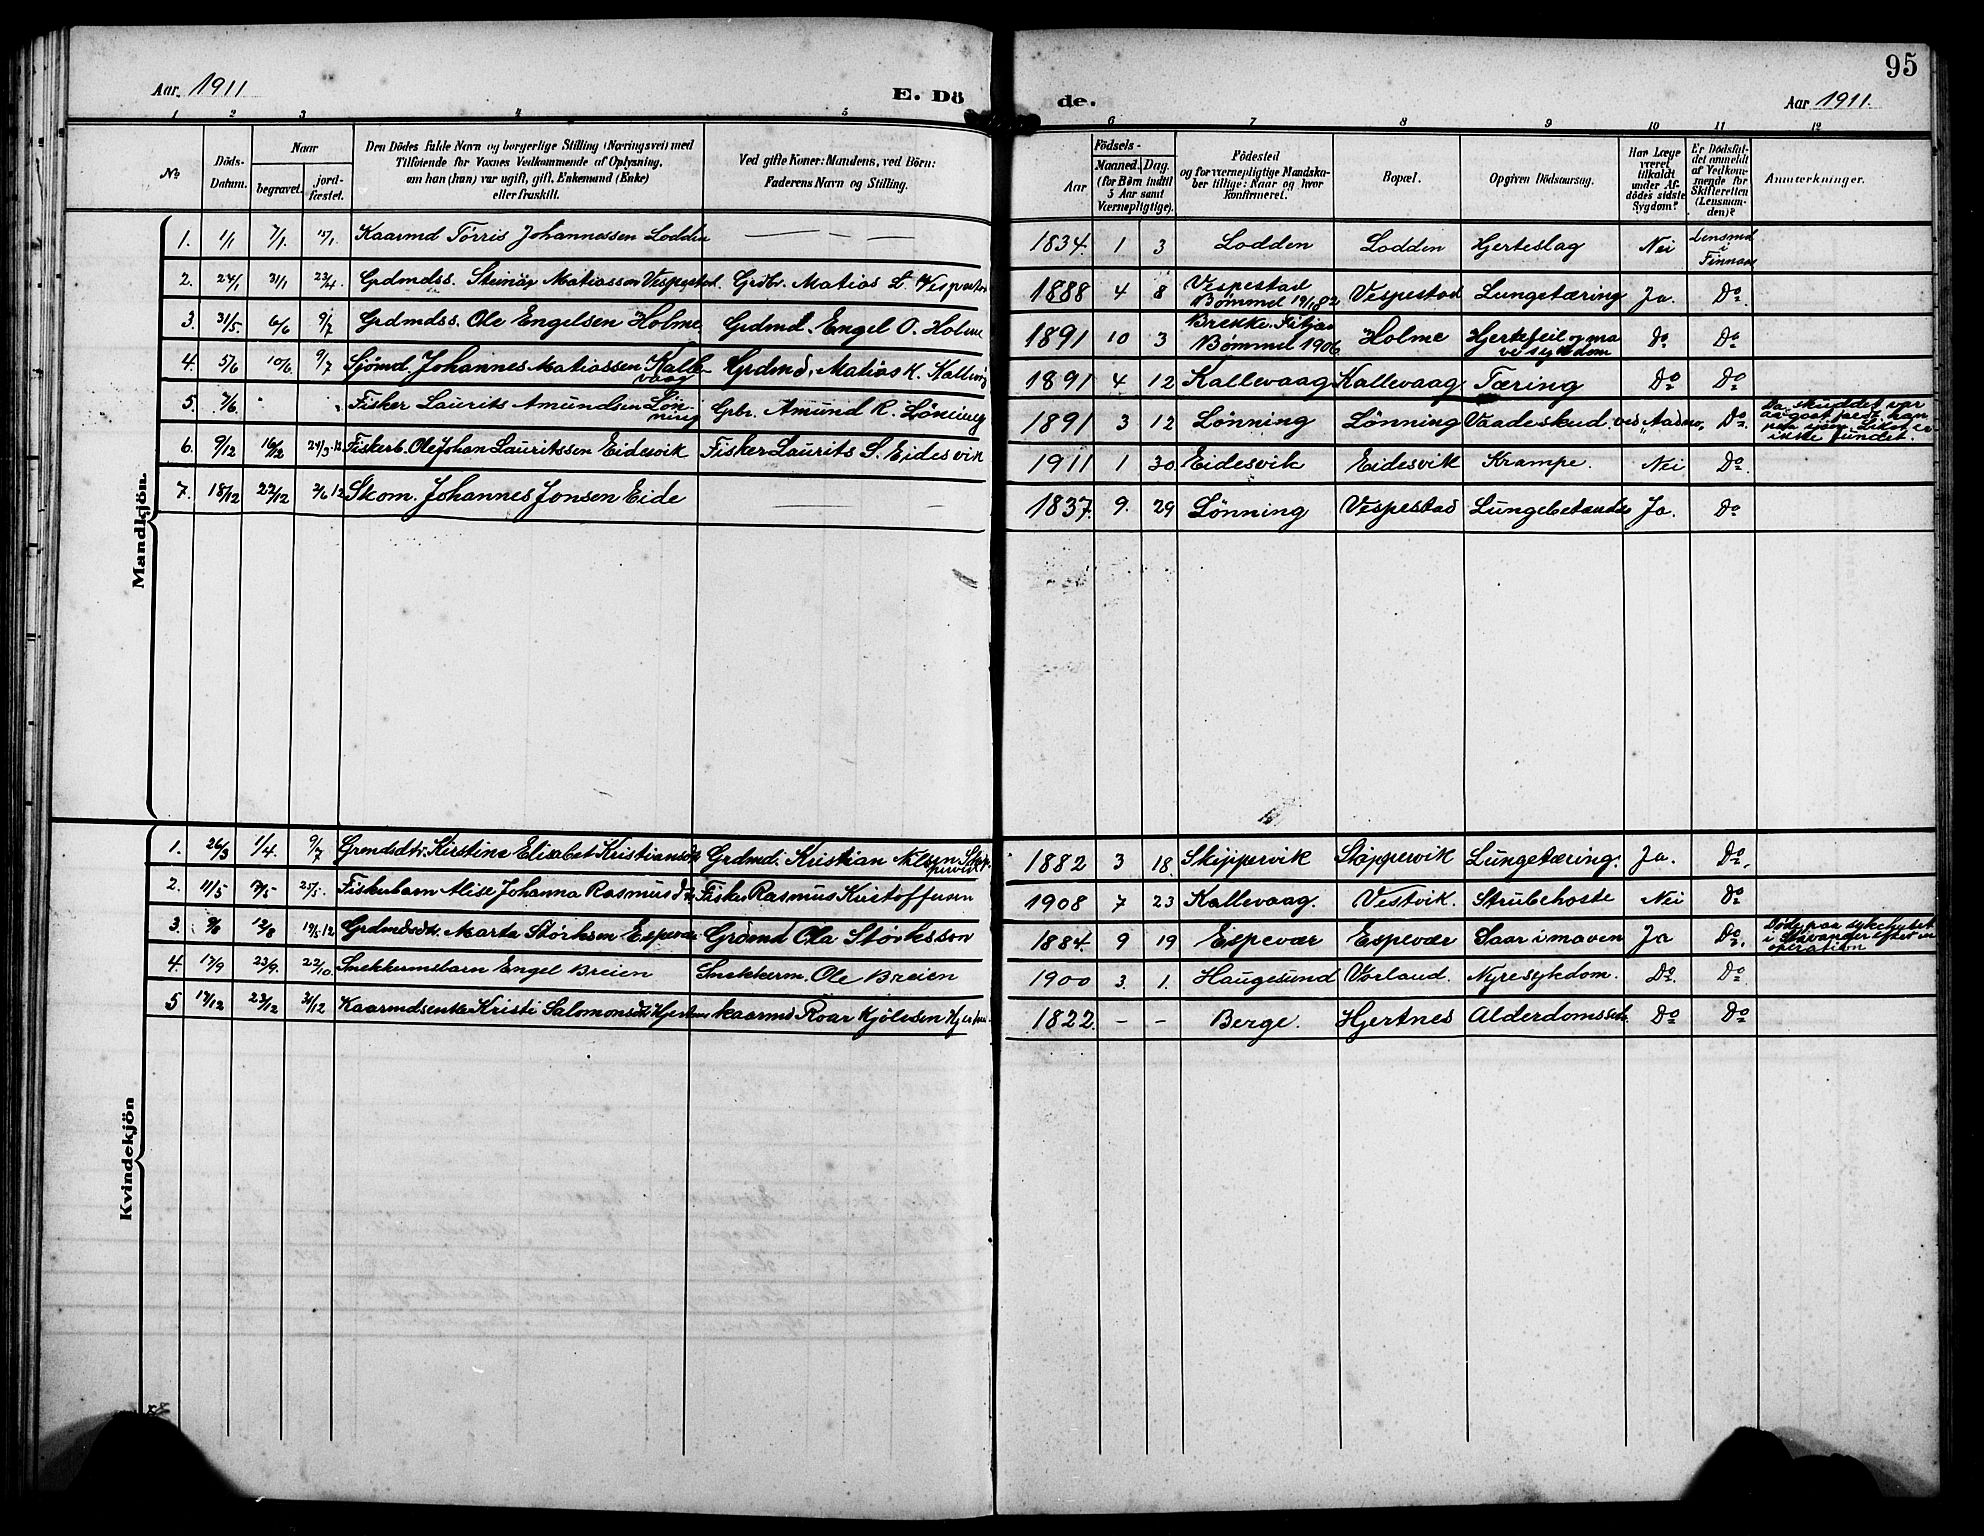 95
Aar 1911
E. Dö
de.
Aar 1911.
1 2 3 4 5 6 7 8 9 10 11 12
No
Döds-
Datum.
Naar
begravet.
jord-
fæstet.
Den Dödes fulde Navn og borgerlige Stilling (Næringsvei) med
Tilföiende for Voxnes Vedkommende af Oplysning,
om han (hun) var ugift, gift, Enkemand (Enke)
eller fraskilt.
Ved gifte Koner: Mandens, ved Börn:
Faderens Navn og Stilling.
Födsels-
Aar
Maaned. Dag.
(for Börn indtil
3 Aar samt
Værnepligtige).
Födested
og for værnepligtige Mandska-
ber tillige: Naar og hvor
konfirmeret.
Bopæl.
Opgiven Dödsaarsag.
Har Læge
været
tilkaldt
under Af-
dödes sidste
Sygdom?
Er Dödsfal-
det anmeldt
af Vedkom-
mende for
Skifteretten
(Lensman-
den)?
Anmærkninger.
Mandkjön.
1. 1/1 7/1. 15/1. Kaarmd Törris Johannessen Lodden — — — 1834. 1 3 Lodden Lodden Hjerteslag Nei Lensmd i Finnaas
2. 24/1 31/1 23/4. Grdmdss. Steinar Matiassen Vespestad. Grdbr. Matias L. Vespestad 1888 4 8 Vespestad Bömmel Vespestad Lungetæring Ja. Do
3. 31/5 6/6 9/7 Grdmdss. Ole Engelsen Holme Grdmd. Engel O. Holme 1891 10 3 Brekke. Fitjar Bömmel 1906. Holme Hjertefeil og mavesykdom Do Do
4. 5/6 10/6. 9/7 Sjömd. Johannes Matiassen Kallevaag Grdmd. Matias K. Kallevåg 1891 4 12 Kallevaag Kallevaag Tæring Do Do
5. 7/6. Fisker Laurits Amundsen Lönning Gbr. Amund R. Lönning 1891 3 12 Lönning Lönning Vaadeskud ved Do. Da skuddet var ikke fundet.
6 9/12 16/12 24/3.12 Fiskerb. Ole Johan Lauritssen Eidesvik Fisker Laurits S. Eidesvik 1911 1 30. Eidesvik Eidesvik Krampe. Nei Do.
7. 18/12 22/12 2/6 12 Skom. Johannes Jonsen Eide — — 1837. 9. 29 Lönning Vespestad Lungebetændelse Ja. Do
Kvindekjön
1. 26/3 1/4. 9/7 Kirstine Elisabet Kristiansdtr Grdmd. Kristian Nilsen Skippervik 1882 3 18. Skippervik Skippervik Lungetæring. Ja. Do.
2. 11/5 25/5. Fiskerbarn Alise Johanna Rasmusd Fisker Rasmus Kristoffersen 1908 7 23 Kallevaag. Vestvik. Strubehoste Nei Do
3. 12/8 19/5.12 Grdmdsdtr. Marta Störksen Espevær Grdmd Ola Störksson 1884. 9 19 Espevær Espevær Saar i maven Ja Do. Död paa sykehuset i Stavanger efter en operation
4. 17/9 23/9. 22/10. Snekkermsbarn Engel Breien Snekkerm. Ole Breien 1900 3. 1. Haugesund Vorland. Nyresykdom. Do. Do.
5 17/12 23/12 31/12 Kaarmdsenke Kristi Salomonsdtr Hjertnes kaarmd Roar Kjölvsen Hjertnes 1822. – – Berge. Hjertnes Alderdomssv. Do Do